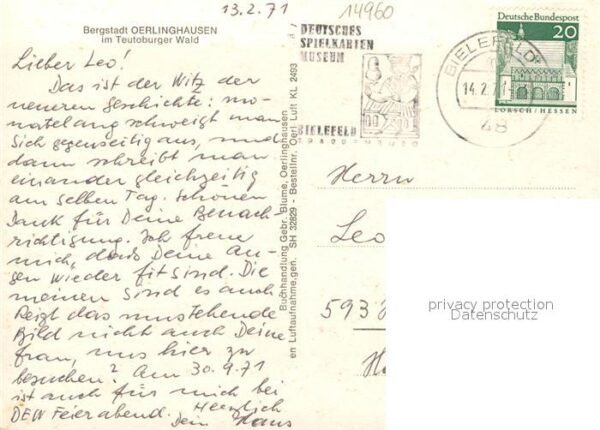 13.2.71
14960
Bergstadt OERLINGHAUSEN
im Teutoburger Wald
Lieber Leo!
Das ist der Witz der
neueren Geschichte: mo-
natelang schweigt man
sich gegenseitig aus, und
dann schreibt man
einander gleichzeitig
am selben Tag. Schönen
Dank für Deine Benach-
richtigung. Ich freue
mich, dass Deine Au-
gen wieder fit sind. Die
meinen sind es auch
Reizt das umstehende
Bild nicht auch Deine
Frau, uns hier zu
besuchen? Am 30.9.71
ist auch für mich bei
DEW Feierabend. Herzlich
Dein Hans
Buchhandlung Gebr. Blume, Oerlinghausen
en Luftaufnahme,gen. SH 32829 - Bestellnr. Oerl Luft KL 2493
DEUTSCHES
SPIELKARTEN
MUSEUM
BIELEFELD
BIELEFELD
14.2.71
48
Deutsche Bundespost
20
LORSCH/HESSEN
Herrn
Leo
593
privacy protection
Datenschutz